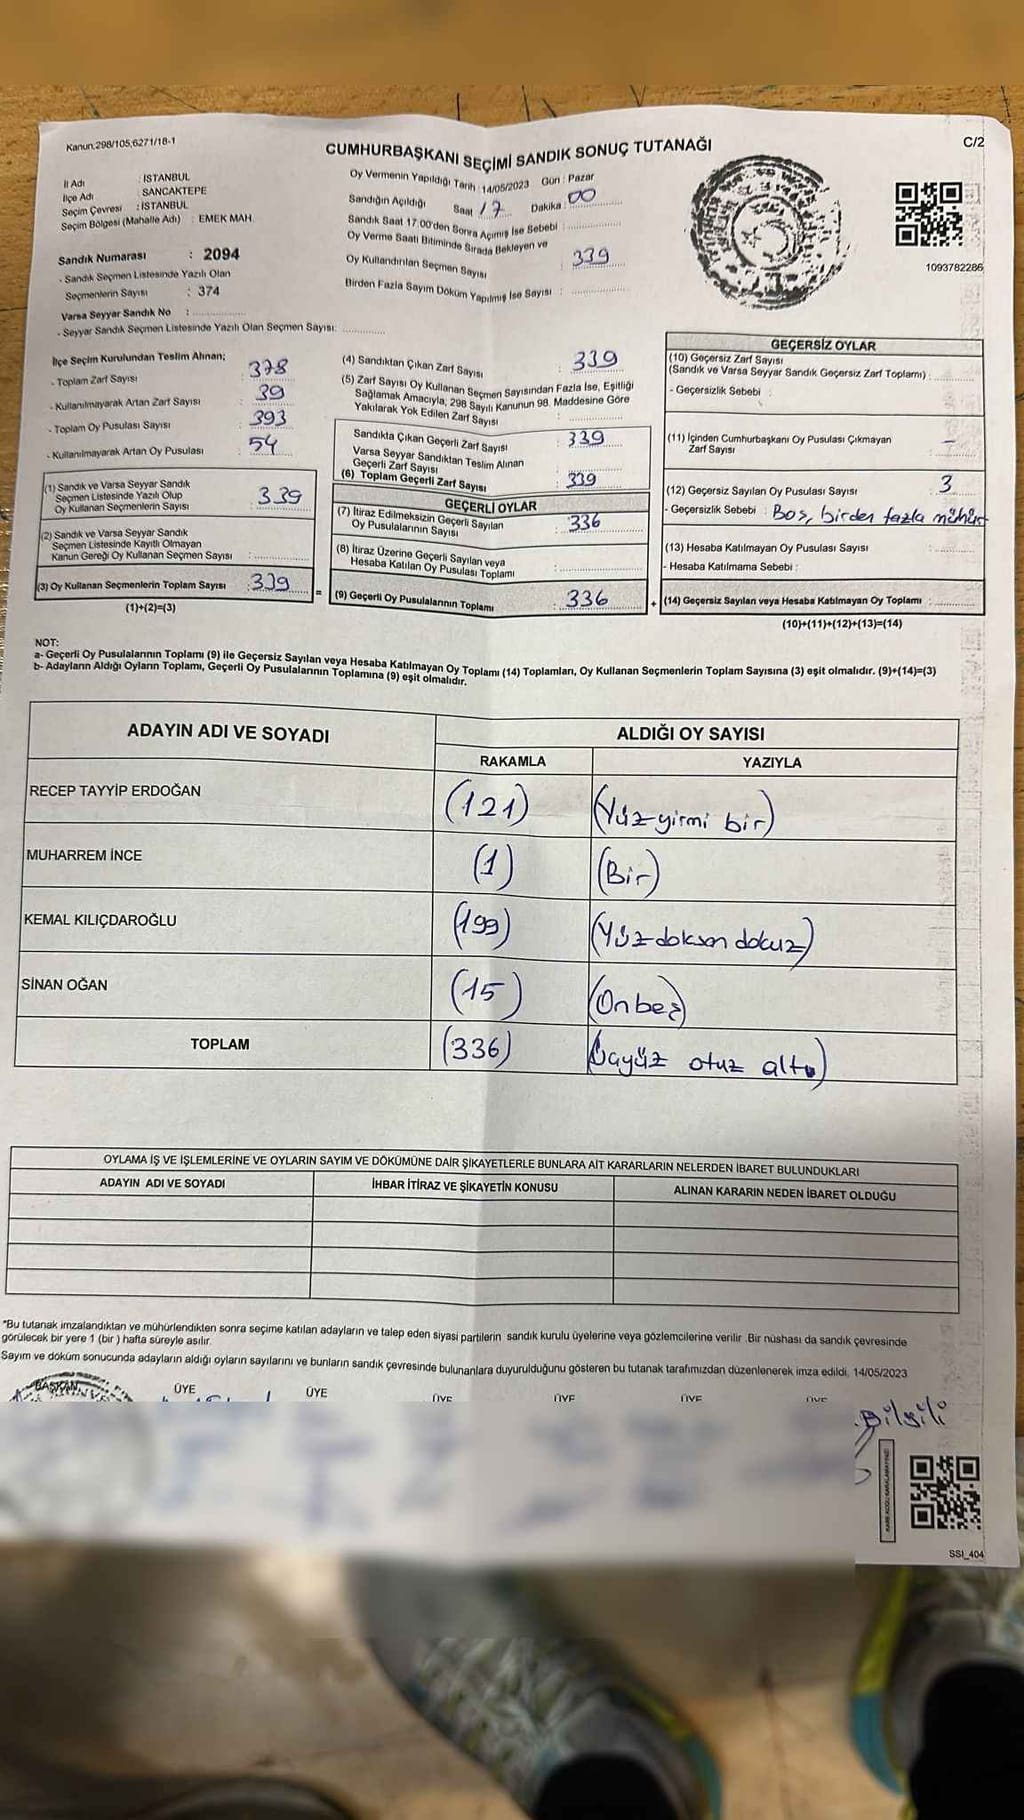 Kanun.298/105,6271/18-1
CUMHURBAŞKANI SEÇİMİ SANDIK SONUÇ TUTANAĞI
C/2
İl Adı : İSTANBUL
İlçe Adı : SANCAKTEPE
Seçim Çevresi : İSTANBUL
Seçim Bölgesi (Mahalle Adı) : EMEK MAH.
Sandık Numarası : 2094
- Sandık Seçmen Listesinde Yazılı Olan
Seçmenlerin Sayısı : 374
Varsa Seyyar Sandık No :
- Seyyar Sandık Seçmen Listesinde Yazılı Olan Seçmen Sayısı:
Oy Vermenin Yapıldığı Tarih : 14/05/2023 Gün : Pazar
Sandığın Açıldığı Saat 17 Dakika : 00
Sandık Saat 17:00'den Sonra Açımış İse Sebebi :
Oy Verme Saati Bitiminde Sırada Bekleyen ve
Oy Kullandırılan Seçmen Sayısı : 339
Birden Fazla Sayım Döküm Yapılmış İse Sayısı :
1093782286
İlçe Seçim Kurulundan Teslim Alınan;
- Toplam Zarf Sayısı : 378
- Kullanılmayarak Artan Zarf Sayısı : 39
- Toplam Oy Pusulası Sayısı : 393
- Kullanılmayarak Artan Oy Pusulası : 54
(1) Sandık ve Varsa Seyyar Sandık
Seçmen Listesinde Yazılı Olup
Oy Kullanan Seçmenlerin Sayısı : 339
(2) Sandık ve Varsa Seyyar Sandık
Seçmen Listesinde Kayıtlı Olmayan
Kanun Gereği Oy Kullanan Seçmen Sayısı :
(3) Oy Kullanan Seçmenlerin Toplam Sayısı : 339
(1)+(2)=(3)
=
(4) Sandıktan Çıkan Zarf Sayısı : 339
(5) Zarf Sayısı Oy Kullanan Seçmen Sayısından Fazla İse, Eşitliği
Sağlamak Amacıyla, 298 Sayılı Kanunun 98. Maddesine Göre
Yakılarak Yok Edilen Zarf Sayısı :
Sandıkta Çıkan Geçerli Zarf Sayısı : 339
Varsa Seyyar Sandıktan Teslim Alınan
Geçerli Zarf Sayısı :
(6) Toplam Geçerli Zarf Sayısı : 339
GEÇERLİ OYLAR
(7) İtiraz Edilmeksizin Geçerli Sayılan
Oy Pusulalarının Sayısı : 336
(8) İtiraz Üzerine Geçerli Sayılan veya
Hesaba Katılan Oy Pusulası Toplamı :
(9) Geçerli Oy Pusulalarının Toplamı : 336
+
GEÇERSİZ OYLAR
(10) Geçersiz Zarf Sayısı
(Sandık ve Varsa Seyyar Sandık Geçersiz Zarf Toplamı) :
- Geçersizlik Sebebi :
(11) İçinden Cumhurbaşkanı Oy Pusulası Çıkmayan
Zarf Sayısı : –
(12) Geçersiz Sayılan Oy Pusulası Sayısı : 3
- Geçersizlik Sebebi : Boş, birden fazla mühür
(13) Hesaba Katılmayan Oy Pusulası Sayısı :
- Hesaba Katılmama Sebebi :
(14) Geçersiz Sayılan veya Hesaba Katılmayan Oy Toplamı :
(10)+(11)+(12)+(13)=(14)
NOT:
a- Geçerli Oy Pusulalarının Toplamı (9) ile Geçersiz Sayılan veya Hesaba Katılmayan Oy Toplamı (14) Toplamları, Oy Kullanan Seçmenlerin Toplam Sayısına (3) eşit olmalıdır. (9)+(14)=(3)
b- Adayların Aldığı Oyların Toplamı, Geçerli Oy Pusulalarının Toplamına (9) eşit olmalıdır.
ADAYIN ADI VE SOYADI ALDIĞI OY SAYISI
RAKAMLA YAZIYLA
RECEP TAYYİP ERDOĞAN (121) (Yüz yirmi bir)
MUHARREM İNCE (1) (Bir)
KEMAL KILIÇDAROĞLU (199) (Yüz doksan dokuz)
SİNAN OĞAN (15) (Onbeş)
TOPLAM (336) (Üçyüz otuz altı)
OYLAMA İŞ VE İŞLEMLERİNE VE OYLARIN SAYIM VE DÖKÜMÜNE DAİR ŞİKAYETLERLE BUNLARA AİT KARARLARIN NELERDEN İBARET BULUNDUKLARI
ADAYIN ADI VE SOYADI İHBAR İTİRAZ VE ŞİKAYETİN KONUSU ALINAN KARARIN NEDEN İBARET OLDUĞU
*Bu tutanak imzalandıktan ve mühürlendikten sonra seçime katılan adayların ve talep eden siyasi partilerin sandık kurulu üyelerine veya gözlemcilerine verilir. Bir nüshası da sandık çevresinde
görülecek bir yere 1 (bir) hafta süreyle asılır.
Sayım ve döküm sonucunda adayların aldığı oyların sayılarını ve bunların sandık çevresinde bulunanlara duyurulduğunu gösteren bu tutanak tarafımızdan düzenlenerek imza edildi. 14/05/2023
BAŞKAN ÜYE ÜYE ÜYE ÜYE ÜYE ÜYE
Bilgili
SSI_404